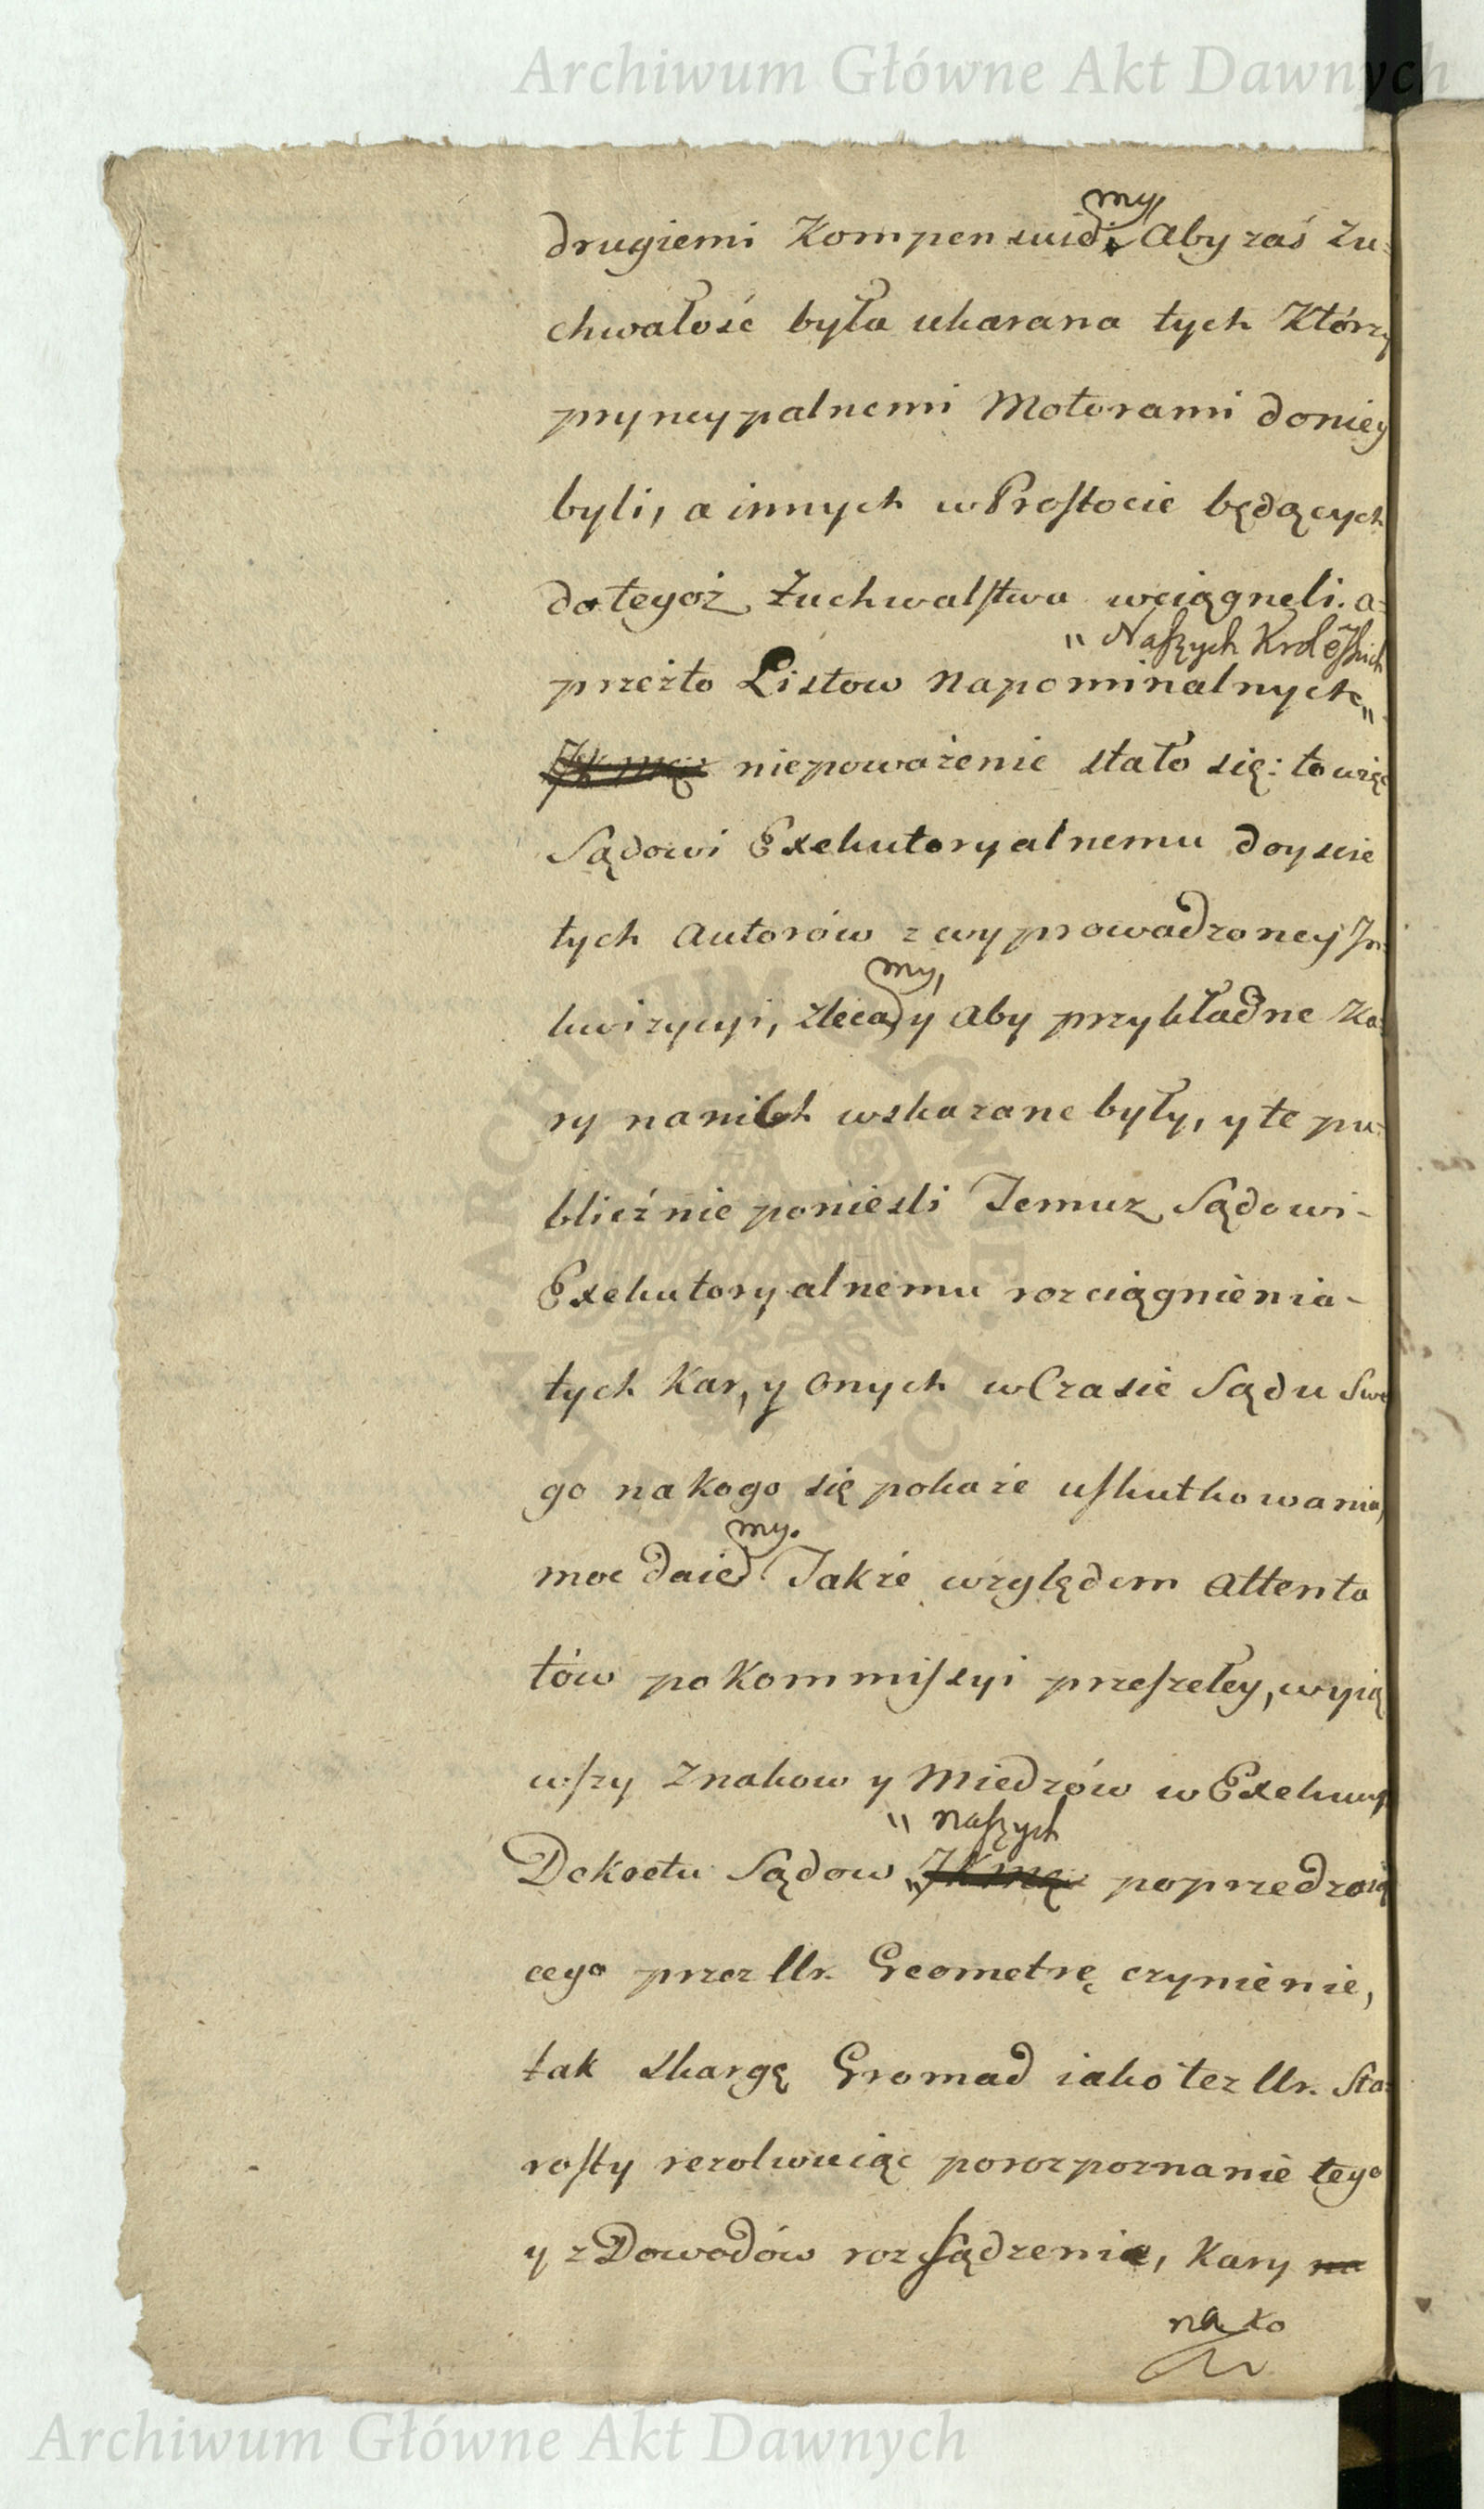 Archiwum Główne Akt Dawnych
my
drugiemi Kompensuie. Aby zaś zu=
chwałość była ukarana tych Którzy
pryncypalnemi Motorami doniey
byli, a innych w Prostocie będących
do tegoż Zuchwalstwa wciągneli. a=
" Naszych Krolewskich
przezto Listow Napominalnych "
niepoważenie stało się: to więc
Sądowi Exekutoryalnemu doyscie
tych Autorów z wyprowadzoney In=
my,
kwizycyi, zleca y Aby przykładne Ka=
ry nanich wskazane były, y te pu=
blicźnie ponieśli Temuz Sądowi-
Exekutoryalnemu rozciągnienia-
tych Kar, y Onych w Czasie Sądu Swe
go na kogo się pokaże uskutkowania
my.
moc daie Takźe względem Attenta
tów po Kommissyi przeszełey, wyią
wszy Znakow y Miedzów w Exekucyi
" naszych
Dekretu Sądow " poprzedzaią
cego przez Ur. Geometrę czynienie,
tak skargę Gromad iako tez Ur. Sta=
rosty rezolwuiąc po rozpoznanie tego
y z Dowodów rozsądzenie, Kary na
na to
Archiwum Główne Akt Dawnych
ARCHIWUM GŁÓWNE AKT DAWNYCH